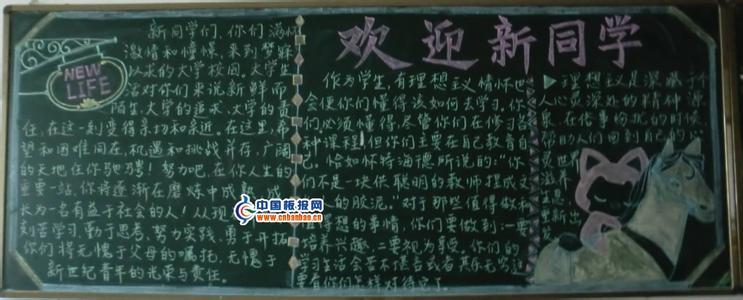 欢迎新同学
NEW
LIFE
新同学们,你们满怀
激情和憧憬,来到梦寐
以求的大学校园。大学生
活对你们来说新鲜而
陌生,大学的追求、大学的责
任,在这一刻变得亲切和亲近。在这里,希
望和困难同在,机遇和挑战并存,广阔
的天地任你驰骋!努力吧,在你人生的
重要一站,你将逐渐在磨炼中成熟,成
为一名有益于社会的人!从现
刻苦学习、勤于思考、努力实践、勇于开拓
你们将无愧于父母的嘱托,无愧于
新世纪青年的光荣与责任。
作为学生,有理想主义情怀也
会使你们懂得该如何去学习。你
们必须懂得,尽管你们在修习各
种课程,但你们主要在自己教育自
己。恰如怀特海德所说的:“你
们不是一块供聪明的教师捏成文
的胶泥。”对于那些值得做和
值得想的事情,你们要做到:一要
培养兴趣,二要视为享受。你们的
学习生活会苦不堪言或者其乐无穷,这
要看你们怎样对待它了。
理想主义是深藏于
人心灵深处的精神源
泉,在
帮助人们回到自己的心
灵世
滋养
思想
更新
中国板报网
www.cnbanbao.cn